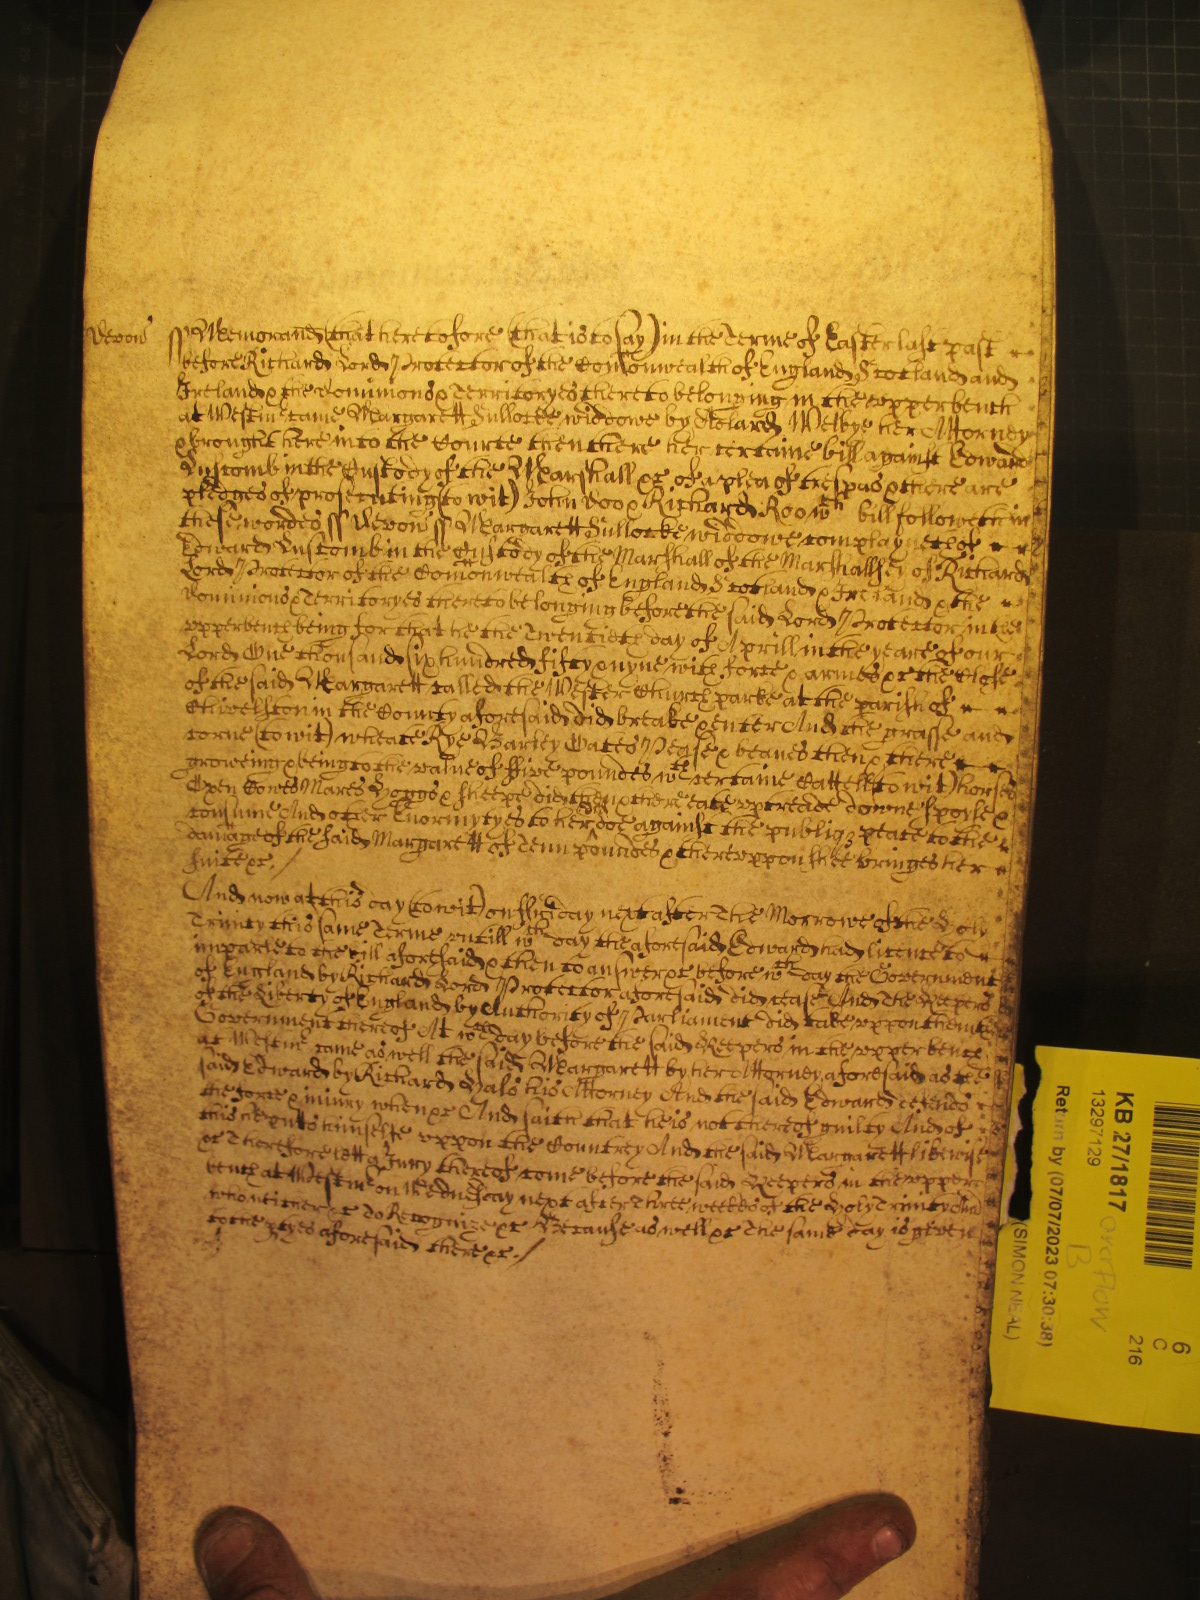 Devon ss Memorand that heretofore (that is to say) in the Terme of Easter last past
before Richard Lord Protector of the Comonwealth of England Scotland and
Ireland & the Dominions & Territoryes thereto belonging in the upper bench
at Westm came Margarett Bullocke widdowe by Welbye her Attorney
& brought here into the Courte then there her certaine bill against Edward
Luscomb in the Custody of the Marshall &c of a plea of trespas & there are
pledges of prosecuting (to wit) John Doo & Richard Roo wch bill followeth in
these wordes ss Devon ss Margarett Bullocke widdowe complayneth of
Edward Luscomb in the Custody of the Marshall of the Marshallsey of Richard
Lord Protector of the Comonwealth of England Scotland & Ireland & the
Dominions & Territoryes thereto belonging before the said Lord Protector in the
upper bench being for that he the Twentieth day of Aprill in the yeare of our
Lord One thousand six hundred fifty & nyne with force & armes &c the Close
of the said Margarett called the Wester Church parke at the parish of
Chivelston in the County aforesaid did breake & enter And the grasse and
corne (to wit) wheate Rye Barley Oates Pease & beanes then & there
groweing & being to the value of ffive poundes wth certaine Cattell (to wit) horses
Oxen Cowes Mares Hoggs & sheepe did then & there eate up treade downe spoyle &
consume And other Enormytyes to her did doe against the publiq peace to the
damage of the said Margarett of Tenn poundes & thereuppon shee bringes her
suite &c.
And now at this day (to wit) on ffryday next after The Morrowe of the Holy
Trinity this same Terme untill wch day the aforesaid Edward had licence to
imparle to the bill aforesaid & then to answer &c before wch day the Government
of England by Richard Lord Protector aforesaid did cease And the Keepers
of the liberty of England by Authority of Parliament did take uppon them the
Government thereof At wch day before the said Keepers in the upper bench
at Westm came as well the said Margarett by her Attorney aforesaid as the
said Edward by Richard Hals his Attorney And the said Edward defends
the force & iniury when &c And saith that he is not thereof guilty And of
this he puts himselfe uppon the Countrey And the said Margarett likewise
&c Therefore lett a Jury thereof come before the said Keepers in the upper
bench at Westm on Wednesday next after Three weekes of the Holy Trinity And
who neither &c To Recognize &c Because as well &c The same day is given
to the ptyes aforesaid there &c.
KB 27/1817
13297129
Return by (07/07/2023 07:30:38)
(SIMON NEAL)
overflow
B
6
C
216